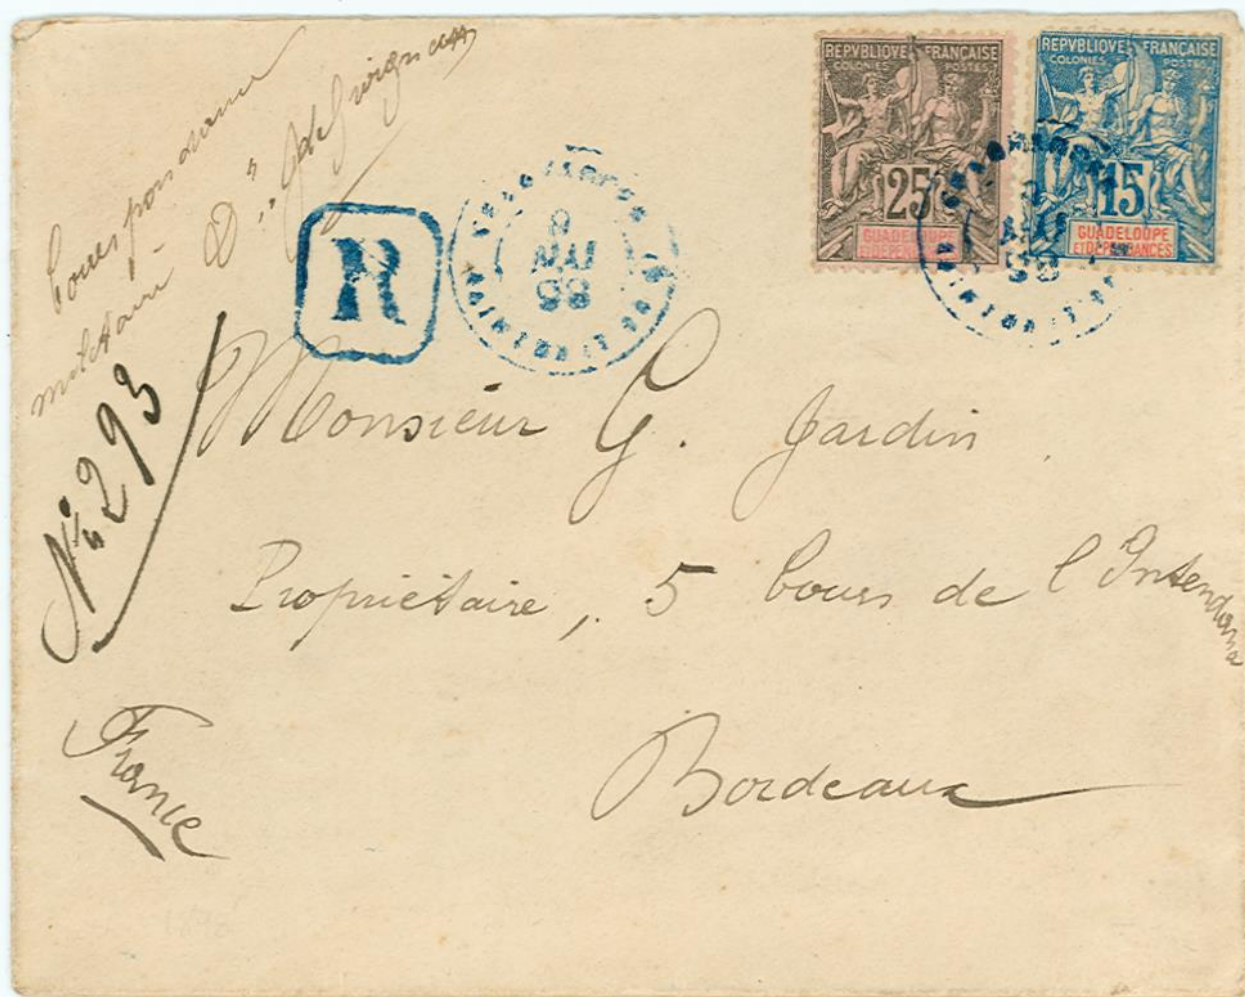 Correspondance
militaire
REPVBLIQVE FRANÇAISE
COLONIES POSTES
25
GUADELOUPE
ET DEPENDANCES
REPVBLIQVE FRANÇAISE
COLONIES POSTES
15
GUADELOUPE
ET DEPENDANCES
R
MAI
98
No 293
Monsieur G. Jardin
Propriétaire, 5 Cours de l'Intendance
Bordeaux
France